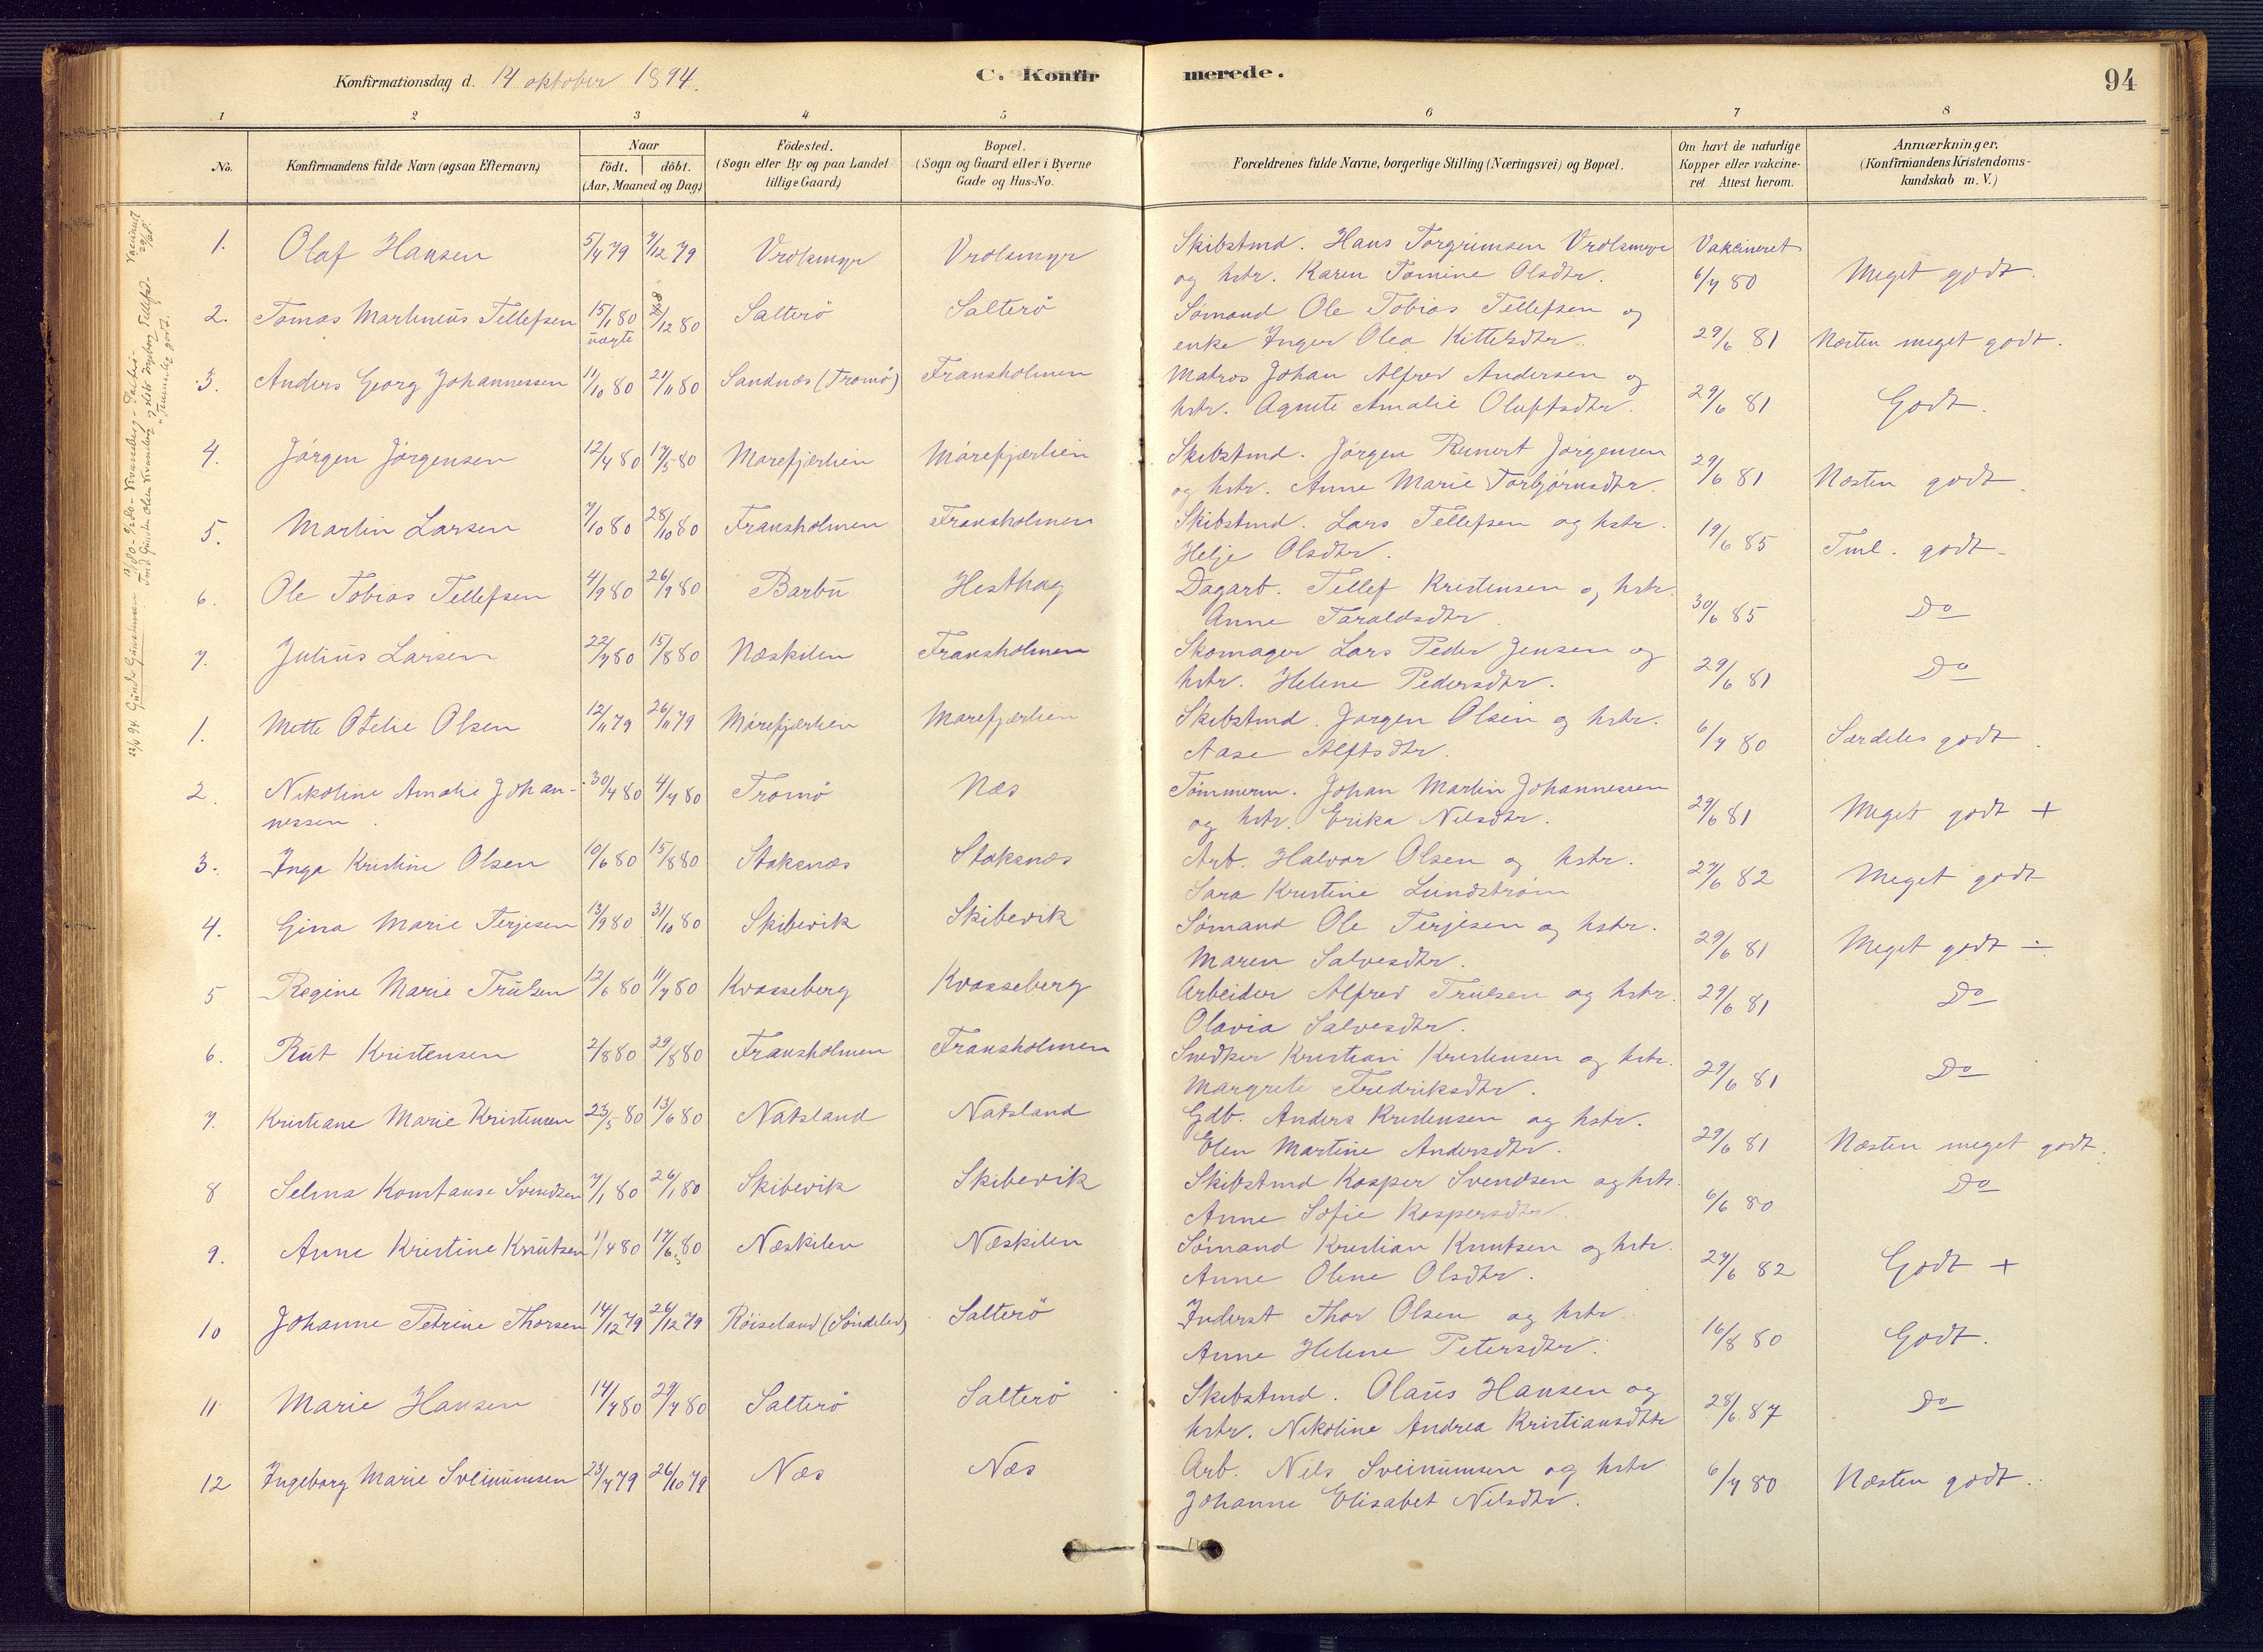 Konfirmationsdag d. 14 oktober 1894.
C. Konfirmerede.
94
1 2 3 4 5 6 7 8
No.
Konfirmandens fulde Navn (ogsaa Efternavn)
Naar
födt. döbt.
(Aar, Maaned og Dag)
Födested.
(Sogn eller By og paa Landet
tillige Gaard)
Bopæl.
(Sogn og Gaard eller i Byerne
Gade og Hus-No.
Forældrenes fulde Navne, borgerlige Stilling (Næringsvei) og Bopæl.
Om havt de naturlige
Kopper eller vakcine-
ret Attest herom.
Anmærkninger,
(Konfirmandens Kristendoms-
kundskab m. V.)
1. Olaf Hansen 5/4 79 7/12 79 Vrolsmyr Vrolsmyr Skibstmd. Hans Torgrimsen Vrolsmyr Vakcineret
og hstr. Karen Tomine Olsdtr. 6/7 80 Meget godt.
2. Tomas Martinius Tellefsen 15/1 80 /12 80 Salterö Salterö Sømand Ole Tobias Tellefsen og
uægte enke Inger Olea Kittelsdtr. 29/6 81 Næsten meget godt.
3. Anders Georg Johannessen 11/10 80 21/11 80 Sandnæs (Tromö) Fransholmen Matros Johan Alfred Andersen og
hstr. Agnete Amalie Oluffsdtr. 29/6 81 Godt.
4. Jörgen Jörgensen 12/4 80 17/5 80 Mørefjærlien Mörefjærlien Skibstmd. Jörgen Reinert Jørgensen
og hstr. Anne Marie Torbjörnsdtr. 29/6 81 Næsten godt.
5. Martin Larsen 7/10 80 28/10 80 Fransholmen Fransholmen Skibstmd. Lars Tellefsen og hstr.
Helje Olsdtr. 19/6 85 Tml. godt.
6. Ole Tobias Tellefsen 4/9 80 26/9 80 Barbu Hesthag Dagarb. Tellef Kristensen og hstr.
Anne Taraldsdtr. 30/6 85 Do
7. Julius Larsen 22/7 80 15/8 80 Næskilen Fransholmen Skomager Lars Peder Jensen og
hstr. Helene Pedersdtr. 29/6 81 Do
1. Mette Otelie Olsen 12/11 79 26/11 79 Mörefjærlien Mørefjærlien Skibstmd. Jørgen Olsen og hstr.
Aase Alfsdtr. 6/7 80 Særdeles godt.
2. Nikoline Amalie Johan- 30/4 80 4/7 80 Tromö Næs Tömmerm. Johan Martin Johannessen
nessen. og hstr. Erika Nilsdtr. 29/6 81 Meget godt +
3. Inga Kristine Olsen 10/6 80 15/8 80 Staksnæs Staksnæs Arb. Halvor Olsen og hstr.
Sara Kristine Lundström 27/6 82 Meget godt
4. Gina Marie Terjesen 13/9 80 31/10 80 Skibevik Skibevik Sømand Ole Terjesen og hstr.
Maren Salvesdtr. 29/6 81 Meget godt ÷
5 Regine Marie Trulsen 12/6 80 11/7 80 Kvasseberg Kvasseberg Arbeider Alfred Trulsen og hstr.
Olavia Salvesdtr. 29/6 81 Do
6. Rut Kristensen 2/8 80 29/8 80 Fransholmen Fransholmen Snedker Kristian Kristensen og hstr.
Margrete Fredriksdtr. 29/6 81 Do
7. Kristiane Marie Kristensen 23/5 80 13/6 80 Natsland Natsland Gdb. Anders Kristensen og hstr.
Elen Martine Andersdtr. 29/6 81 Næsten meget godt.
8 Selma Konstanse Svendsen 7/1 80 26/1 80 Skibevik Skibevik Skibstmd Kasper Svendsen og hstr.
Anne Sofie Kaspersdtr. 6/6 80 Do
9. Anne Kristine Knutsen 1/4 80 17/6 80 Næskilen Næskilen Sömand Kristian Knutsen og hstr.
Anne Oline Olsdtr. 27/6 82 Godt +
10 Johanne Petrine Thorsen 14/12 79 26/12 79 Röiseland (Söndeled) Salterö Inderst Thor Olsen og hstr.
Anne Helene Petersdtr. 16/8 80 Godt.
11 Marie Hansen 14/7 80 29/7 80 Salterö Salterö Skibstmd. Olaus Hansen og
hstr. Nikoline Andrea Kristiansdtr 28/6 87 Do
12 Ingeborg Marie Sveinumsen 23/7 79 26/10 79 Næs Næs Arb. Nils Sveinumsen og hstr
Johanne Elisabet Nilsdtr. 6/7 80 Næsten godt.